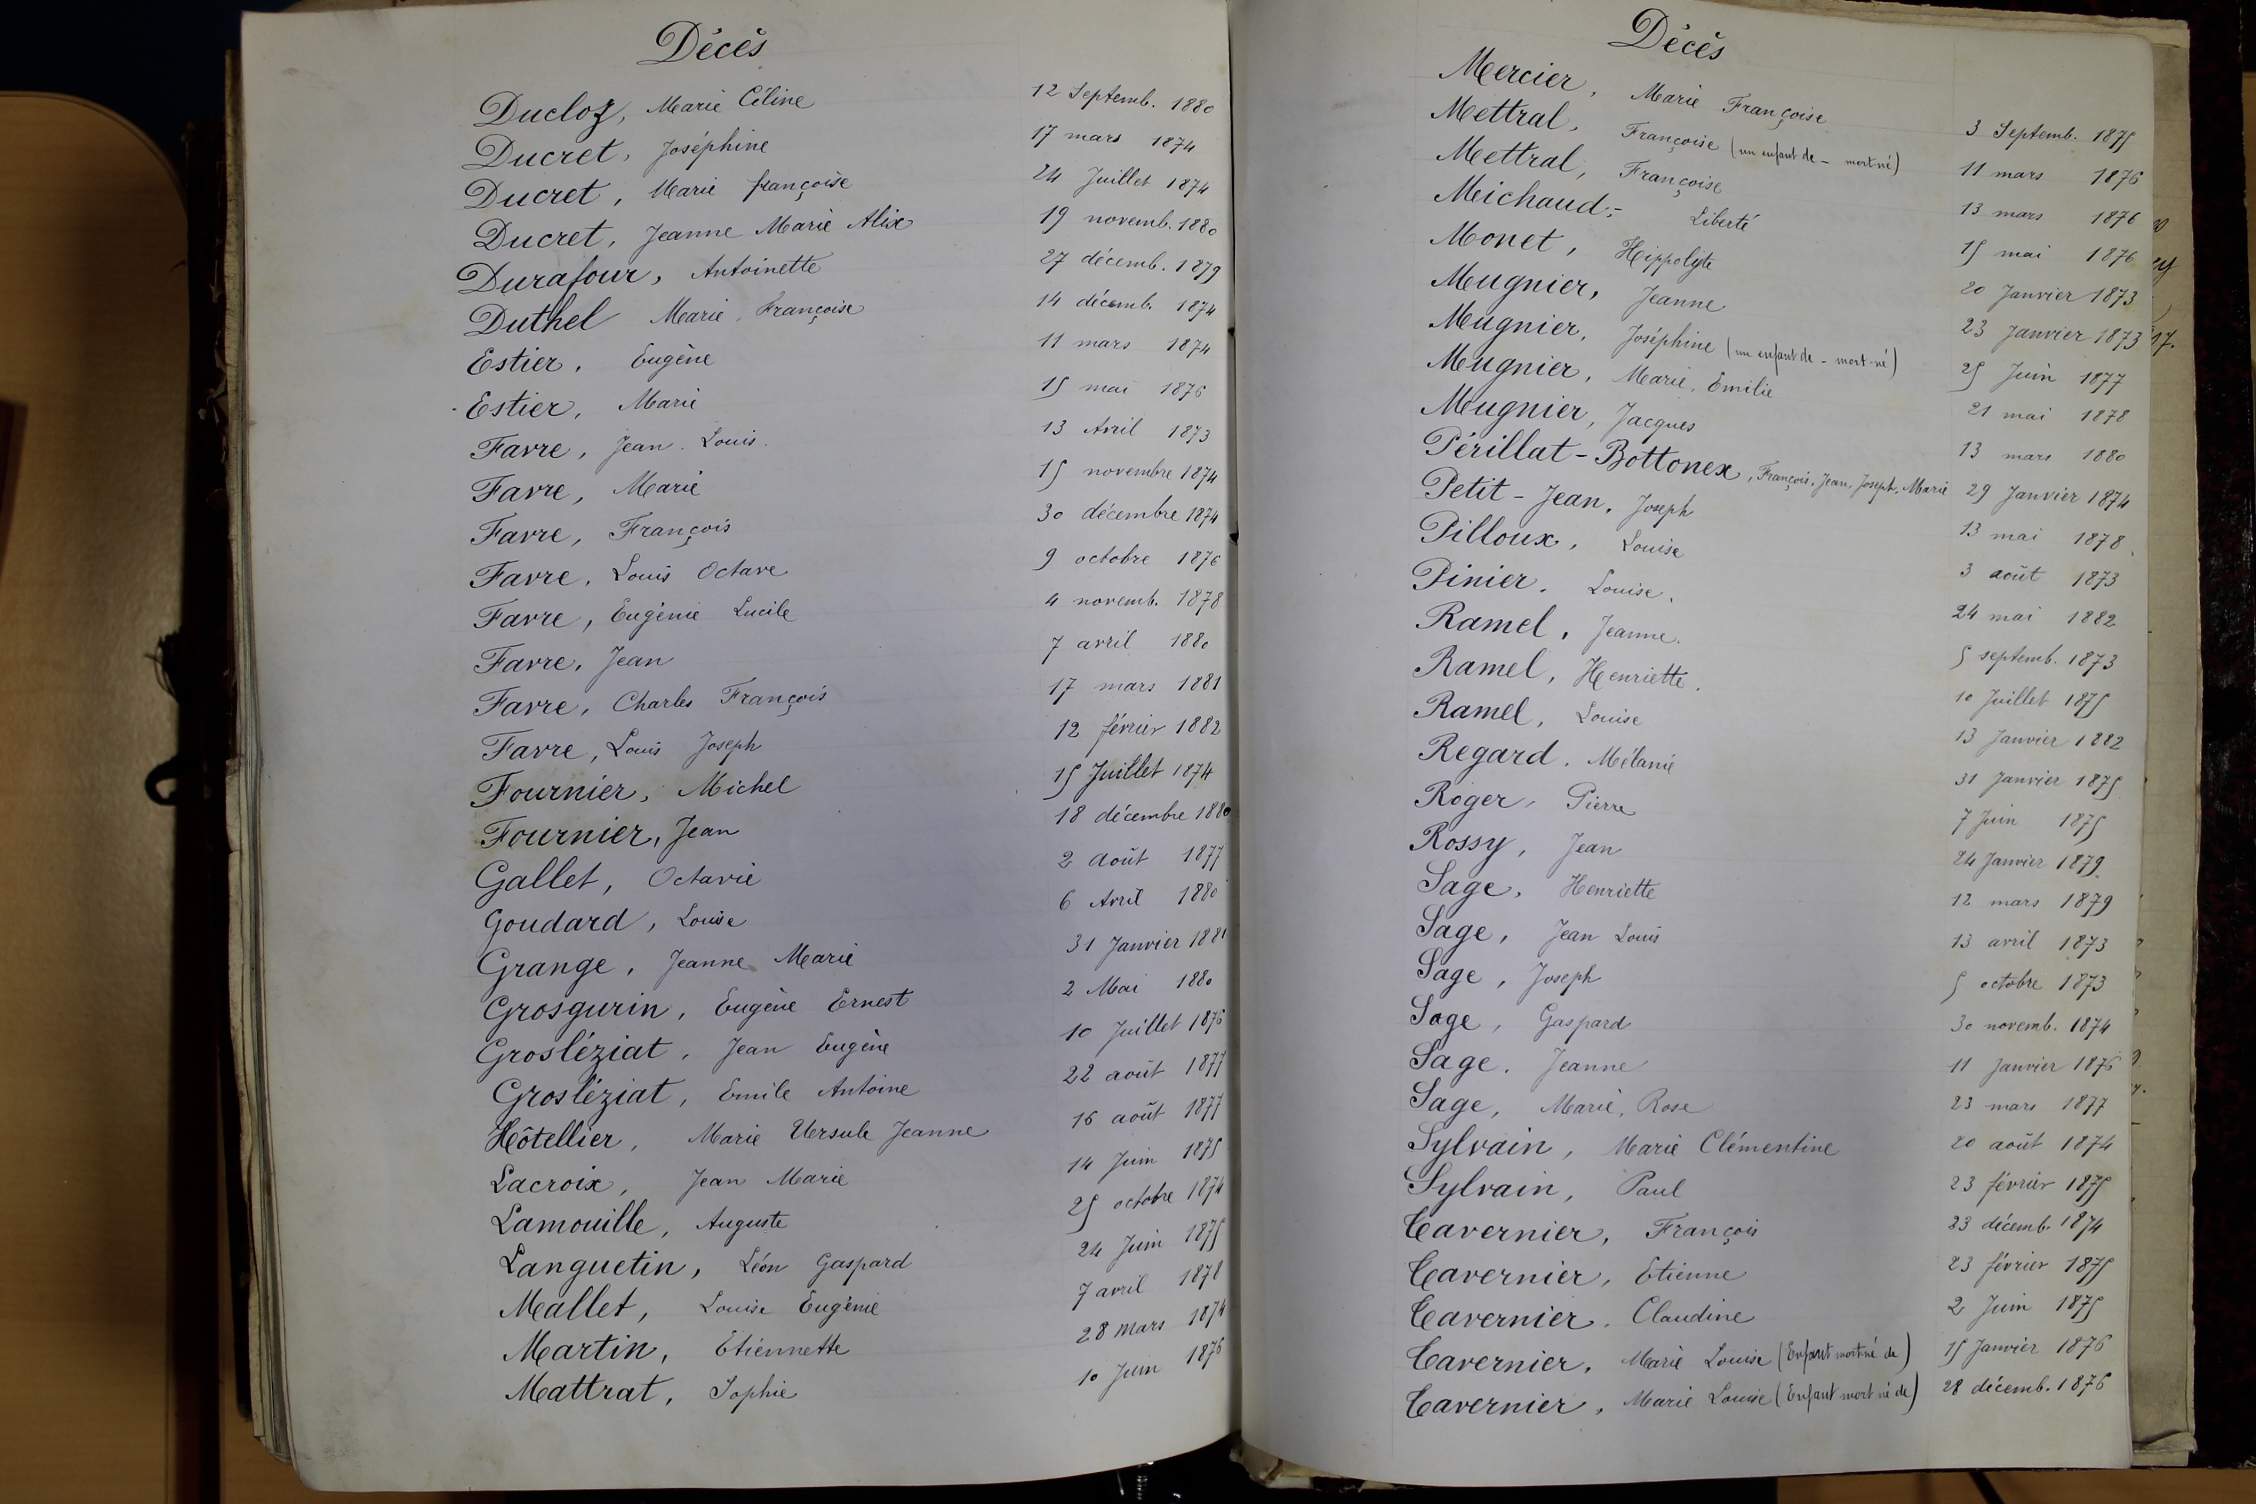 Décès
Ducloz, Marie Céline 12 Septemb. 1880
Ducret, Joséphine 17 mars 1874
Ducret, Marie françoise 24 Juillet 1874
Ducret, Jeanne Marie Alix 19 novemb. 1880
Durafour, Antoinette 27 décemb. 1879
Duthel Marie Françoise 14 décemb. 1874
Estier, Eugène 11 mars 1874
Estier, Marie 15 mai 1876
Favre, Jean Louis. 13 Avril 1873
Favre, Marie 15 novembre 1874
Favre, François 30 décembre 1874
Favre, Louis Octave 9 octobre 1876
Favre, Eugénie Lucile 4 novemb. 1878
Favre, Jean 7 avril 1880
Favre, Charles François 17 mars 1881
Favre, Louis Joseph 12 février 1882
Fournier, Michel 15 Juillet 1874
Fournier, Jean 18 décembre 1880
Gallet, Octavie 2 août 1877
Goudard, Louise 6 Avril 1880
Grange, Jeanne Marie 31 Janvier 1881
Grosgurin, Eugène Ernest 2 Mai 1880
Grosléziat, Jean Eugène 10 Juillet 1876
Grosléziat, Emile Antoine 22 août 1877
Hôtellier, Marie Ursule Jeanne 16 août 1877
Lacroix, Jean Marie 14 Juin 1875
Lamouille, Auguste 25 octobre 1874
Languetin, Léon Gaspard 24 Juin 1875
Mallet, Louise Eugénie 7 avril 1878
Martin, Etiennette 28 mars 1874
Mattrat, Sophie 10 Juin 1876
Décès
Mercier, Marie Françoise 3 Septemb. 1875
Mettral, Françoise (un enfant de - mort-né) 11 mars 1876
Mettral, Françoise 13 mars 1876
Meichaud, Liberté 15 mai 1876
Monet, Hippolyte 20 Janvier 1873
Mugnier, Jeanne 23 Janvier 1873
Mugnier, Joséphine (un enfant de - mort-né) 25 Juin 1877
Mugnier, Marie, Emilie 21 mai 1878
Mugnier, Jacques 13 mars 1880
Périllat-Bottonex, François, Jean, Joseph, Marie 29 Janvier 1874
Petit-Jean, Joseph 13 mai 1878
Pilloux, Louise 3 août 1873
Pinier, Louise. 24 mai 1882
Ramel, Jeanne. 5 septemb. 1873
Ramel, Henriette. 10 Juillet 1875
Ramel, Louise 13 Janvier 1882
Regard. Mélanie 31 Janvier 1875
Roger, Pierre 7 Juin 1875
Rossy, Jean 24 Janvier 1879.
Sage, Henriette 12 mars 1879
Sage, Jean Louis 13 avril 1873
Sage, Joseph 5 octobre 1873
Sage, Gaspard 30 novemb. 1874
Sage. Jeanne 11 Janvier 1876
Sage, Marie, Rose 23 mars 1877
Sylvain, Marie Clémentine 20 août 1874
Sylvain, Paul 23 février 1875
Tavernier, François 23 décemb. 1874
Tavernier, Etienne 23 février 1875
Tavernier, Claudine 2 Juin 1875
Tavernier, Marie Louise (Enfant mort né de) 15 Janvier 1876
Tavernier, Marie Louise (Enfant mort né de) 28 décemb. 1876